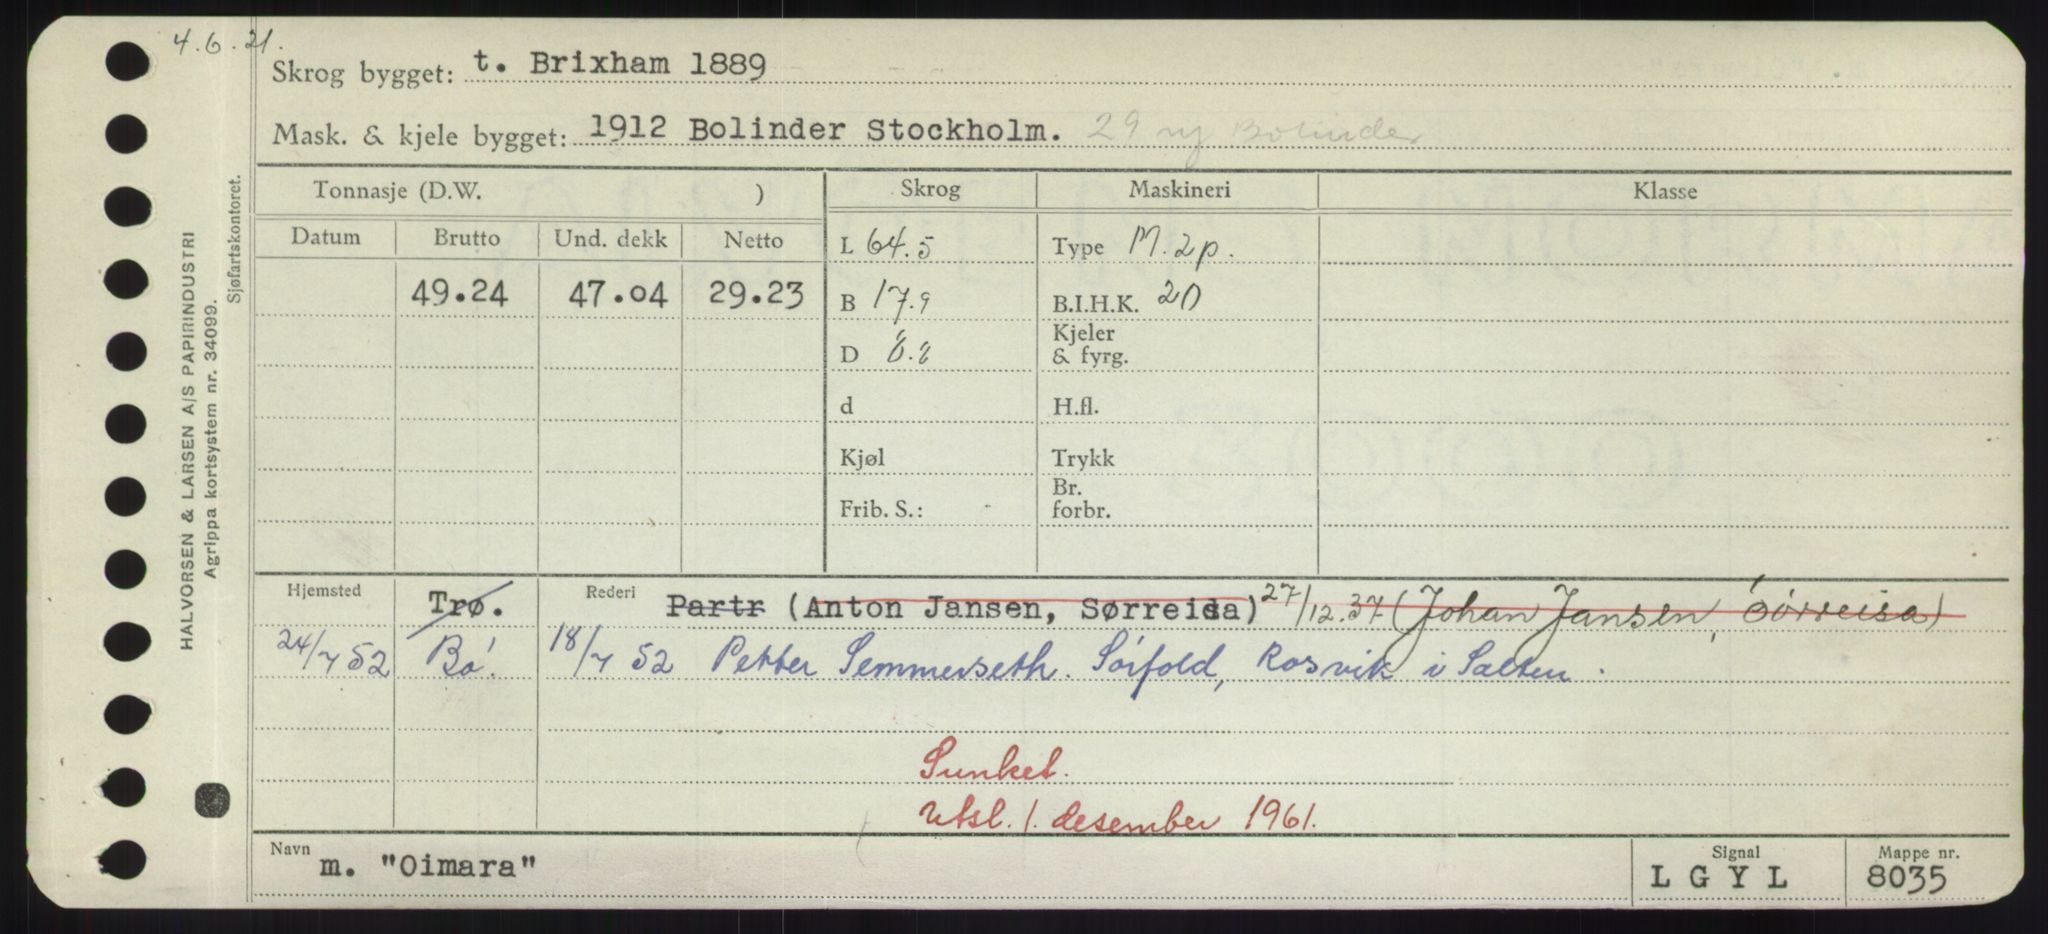 4.6.21.
Skrog bygget: t. Brixham 1889
Mask. & kjele bygget: 1912 Bolinder Stockholm. 29 ny Bolinder
Tonnasje (D.W. ) Skrog Maskineri Klasse
Datum Brutto Und. dekk Netto L 64.5 Type M. 2p.
49.24 47.04 29.23 B 17.9 B.I.H.K. 20
D 8.8 Kjeler & fyrg.
d H.fl.
Kjøl Trykk
Frib. S.: Br. forbr.
Hjemsted Trø. Rederi Partr (Anton Jansen, Sørreisa) 27/12.37 (Johan Jansen, Sørreisa)
24/7 52 Bø. 18/7 52 Petter Semmerseth. Sørfold, Rosvik i Salten.
Sunket.
Utsl. 1. desember 1961.
Navn m. "Oimara" Signal LGYL Mappe nr. 8035
HALVORSEN & LARSEN A/S PAPIRINDUSTRI
Agrippa kortsystem nr. 34099.
Sjøfartskontoret.